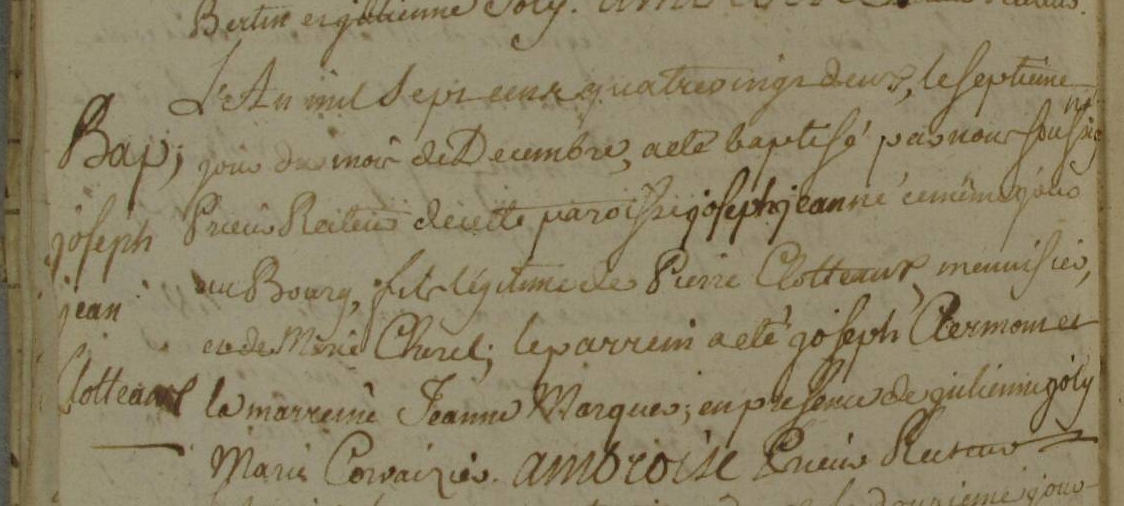 Bertin et julienne Joly.
L'An mil Sept cent quatrevingt deux, le septieme
Bap; jour du mois de Decembre, a eté baptisé par nous soussig
né
joseph Prieur Recteur de cette paroisse joseph jean né ce même jour
jean au Bourg, fils légitime de Pierre Clotteaux, menuisier,
et de Marie Cherel; le parrein a eté joseph Clermont et
Clotteaux la marreine Jeanne Marquer; en presence de julienne joly
Marie Corvaizier. ambroise Prieur Recteur
jour